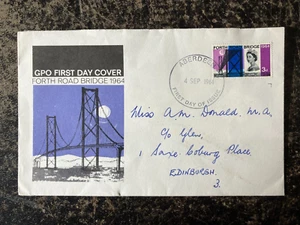 GPO FIRST DAY COVER
FORTH ROAD BRIDGE 1964
ABERDEEN
4 SEP 1964
FIRST DAY OF ISSUE
FORTH ROAD BRIDGE
Miss A.M. Donald, M.A.
c/o
1 Saxe Coburg Place
EDINBURGH
3.